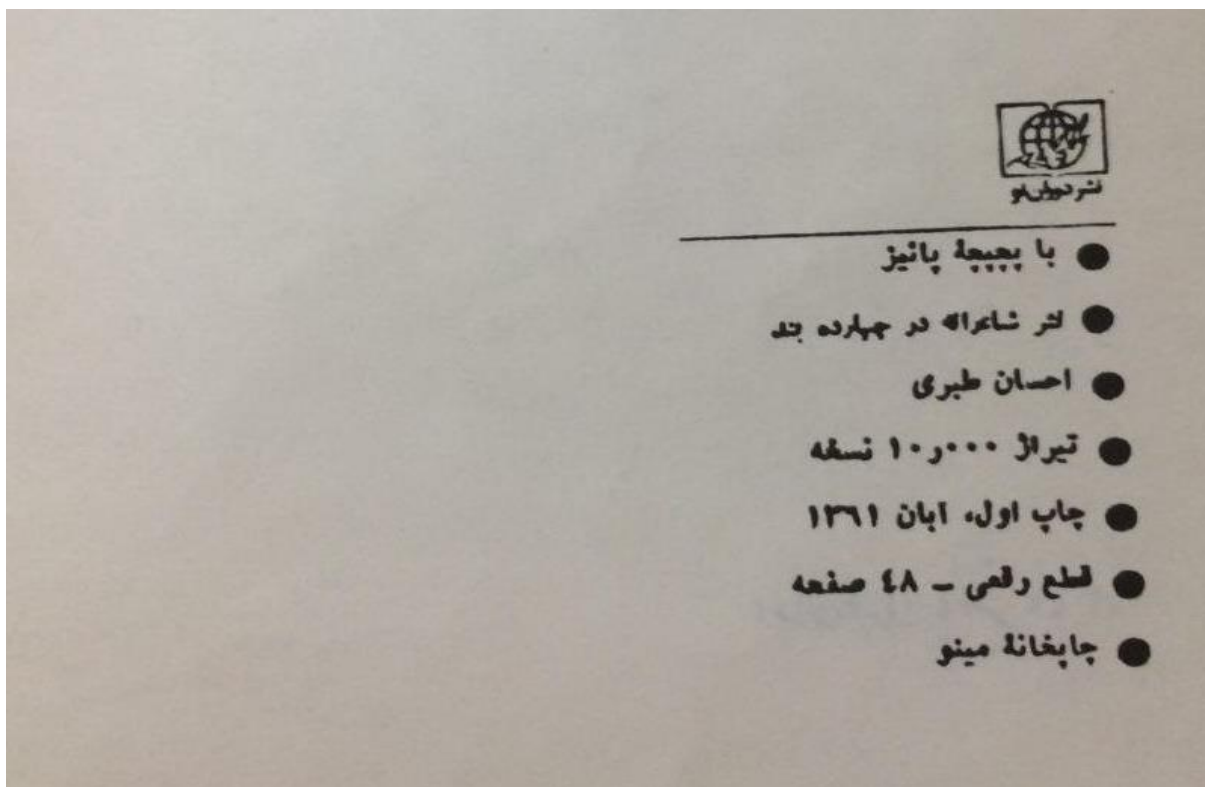 نشر دوران نو
با پچپچهٔ پائیز
نثر شاعرانه در چهارده بند
احسان طبری
تیراژ ۱۰٫۰۰۰ نسخه
چاپ اول، آبان ۱۳۶۱
قطع رقعی ـ ٤٨ صفحه
چاپخانهٔ مینو